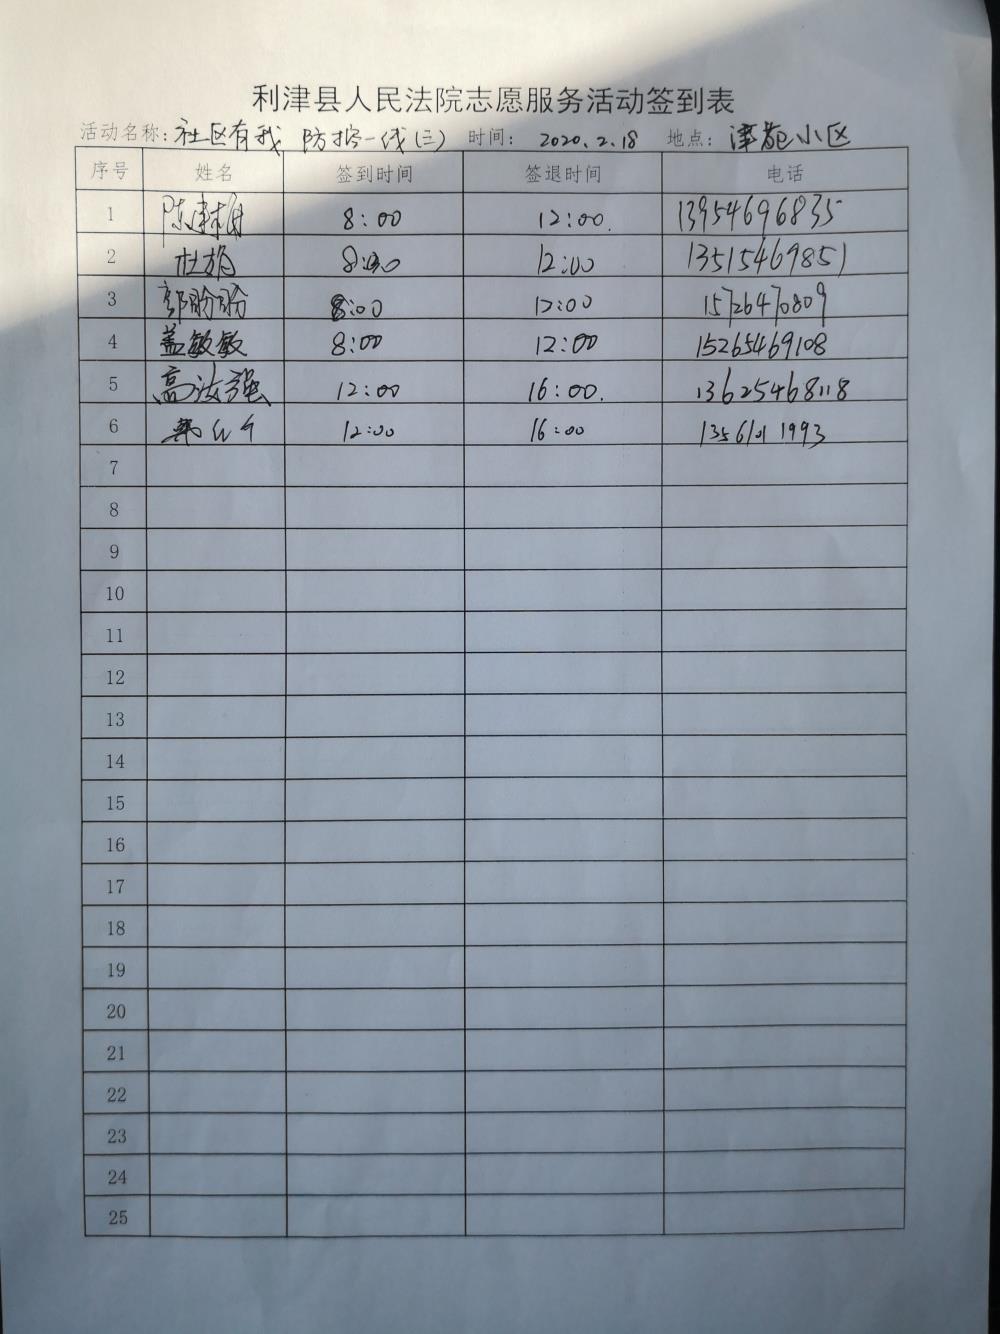 利津县人民法院志愿服务活动签到表
活动名称: 社区有我 防控一线(三) 时间: 2020.2.18 地点: 津苑小区
序号 姓名 签到时间 签退时间 电话
1 陈建树 8:00 12:00. 13954696835
2 杜娟 8:00 12:00 13515469851
3 郭盼盼 8:00 12:00 15726470809
4 盖敏敏 8:00 12:00 15265469108
5 高汝强 12:00 16:00. 13625468118
6 12:00 16:00 13561011993
7
8
9
10
11
12
13
14
15
16
17
18
19
20
21
22
23
24
25